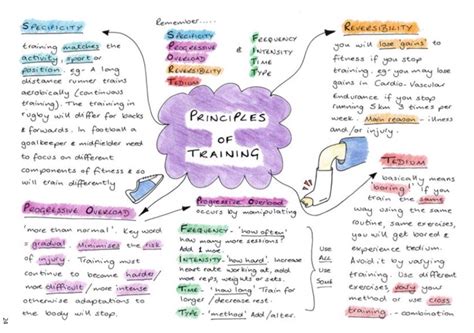 SPECIFICITY
training matches the
activity, sport or
position. eg- A long
distance runner trains
aerobically (continuous
training). The training in
rugby will differ for backs
& forwards. In football a
goalkeeper & midfielder need
to focus on different
components of fitness & so
will train differently
Remember.....
SPECIFICITY
PROGRESSIVE
OVERLOAD
REVERSIBILITY
TEDIUM
FREQUENCY
INTENSITY
TIME
TYPE
PRINCIPLES
OF
TRAINING
REVERSIBILITY
you will 'lose gains' to
fitness if you stop
training. eg: you may lose
gains in Cardio. Vascular
Endurance if you stop
running 5km 3 times per
week. Main reason - illness
and/or injury.
TEDIUM
basically means
'boring'! If you
train the same
way using the same
routine, same exercises,
you will get bored &
experience tedium.
Avoid it by varying
training. Use different
exercises, vary your
method or use cross
/ combination training
PROGRESSIVE OVERLOAD
'more than normal'. Key word
= gradual. Minimises the risk
of injury. Training must
continue to become harder/
more difficult / more intense
otherwise adaptations to
the body will stop.
Progressive Overload
occurs by manipulating
FREQUENCY - 'how often'
how many more sessions?
Add 1 or more.
INTENSITY - 'how hard'. Increase
heart rate working at, add
more reps, weights, or sets.
TIME - 'how long' Train for
longer / decrease rest.
TYPE - 'method' Add / alter.
Use
ALL
Use
Some